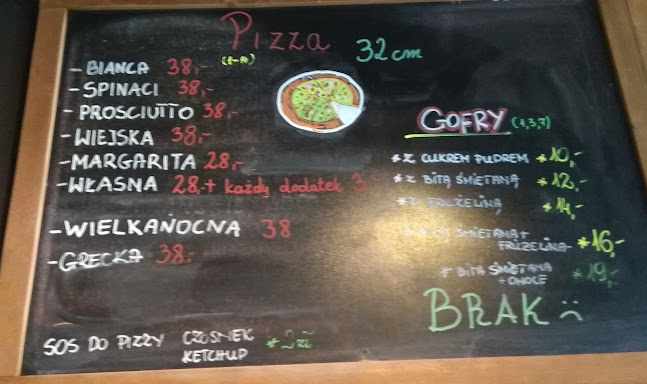 Pizza 32cm
(1-14)
- BIANCA 38,-
- SPINACI 38,-
- PROSCIUTTO 38,-
- WIEJSKA 38,-
- MARGARITA 28,-
- WŁASNA 28,- + każdy dodatek 3,-
- WIELKANOCNA 38
- GRECKA 38,-
SOS DO PIZZY CZOSNEK KETCHUP * 2zł
GOFRY (1,3,7)
* Z CUKREM PUDREM * 10,-
* Z BITĄ ŚMIETANĄ * 12,-
* Z FRUŻELINĄ * 14,-
BITĄ ŚMIETANA +
FRUŻELINA * 16,-
+ BITA ŚMIETANA
+ OWOCE * 19,-
BRAK :(